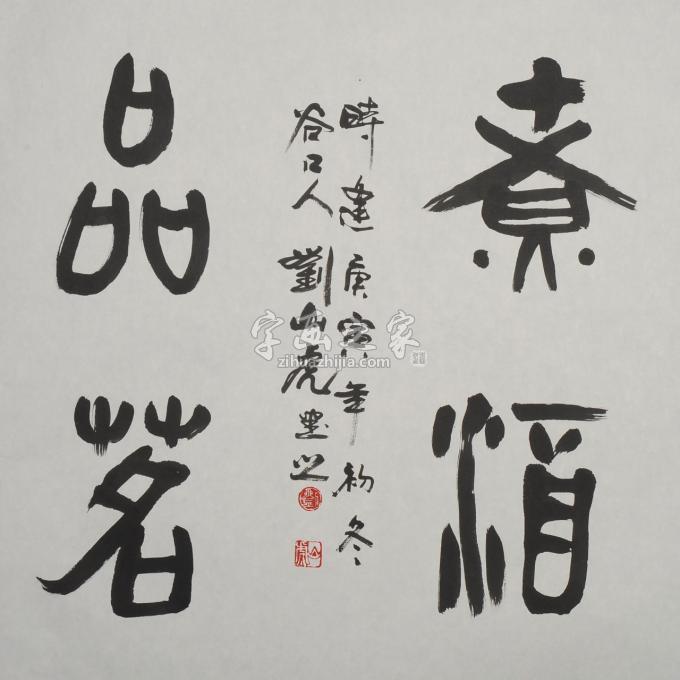 煮酒
時逢庚寅年初冬
谷口人劉山虎書之
品茗
字画之家
zihuazhijia.com